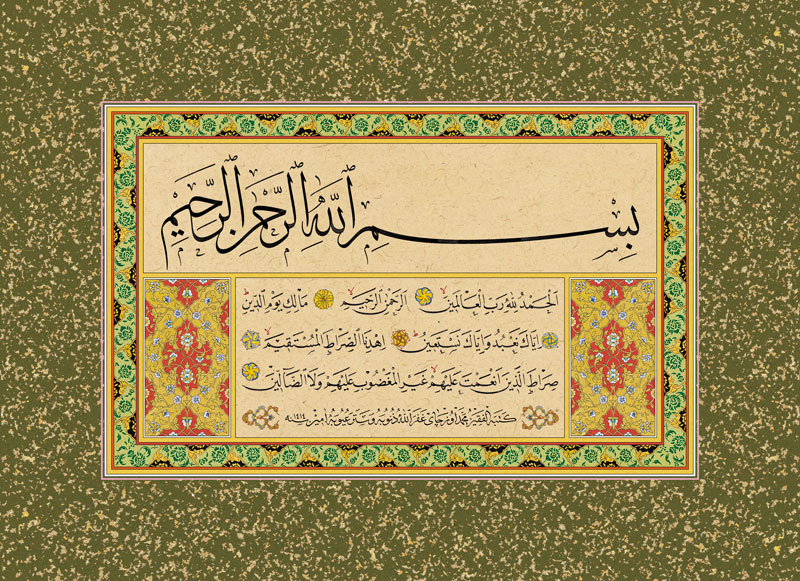 بِسْمِ اللهِ الرَّحْمٰنِ الرَّحِيْمِ
اَلْحَمْدُ لِلّٰهِ رَبِّ الْعَالَمِيْنَ اَلرَّحْمٰنِ الرَّحِيْمِ مَالِكِ يَوْمِ الدِّيْنِ
اِيَّاكَ نَعْبُدُ وَاِيَّاكَ نَسْتَعِيْنُ اِهْدِنَا الصِّرَاطَ الْمُسْتَقِيْمَ
صِرَاطَ الَّذِيْنَ اَنْعَمْتَ عَلَيْهِمْ غَيْرِ الْمَغْضُوْبِ عَلَيْهِمْ وَلَا الضَّالِّيْنَ
كتبه الفقير محمد اوزجاى غفر الله ذنوبه وستر عيوبه آمين